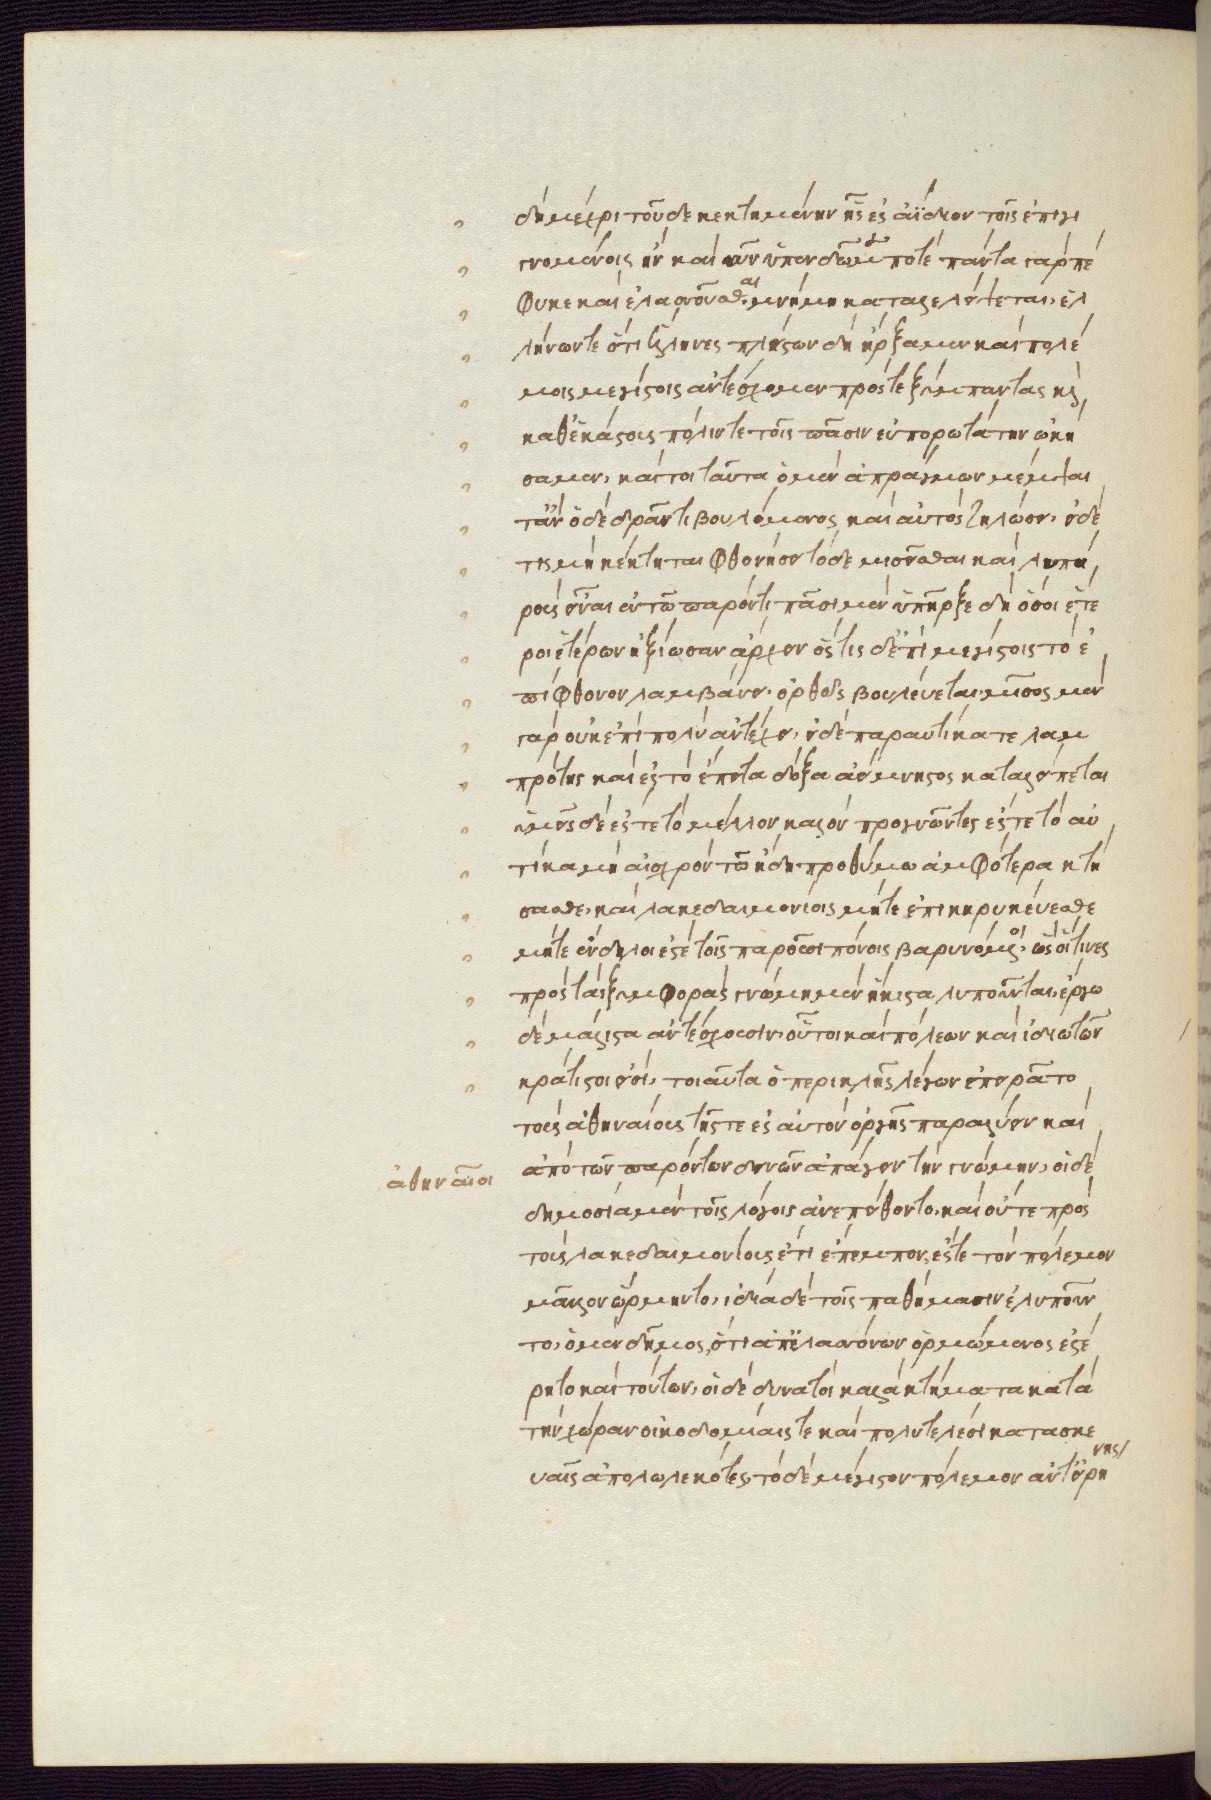 δὴ μέχρι τοῦδε κεκτημένην ἧς ἐς ἀΐδιον τοῖς ἐπιγι
γνομένοις ἢν καὶ νῦν ὑπενδῶμέν ποτὲ πάντα γὰρ πέ
φυκε καὶ ἐλασσοῦσθαι μνήμη καταλελείψεται, ἑλ
λήνων τε ὅτι ἕλληνες πλείστων δὴ ἤρξαμεν καὶ πολέ
μοις μεγίστοις ἀντέσχομεν πρός τε ξύμπαντας καὶ
καθ' ἑκάστους πόλιν τε τοῖς πᾶσιν εὐπορωτάτην ᾠκή
σαμεν, καίτοι ταῦτα ὁ μὲν ἀπράγμων μέμψαι
τ' ἂν ὁ δὲ δρᾶν τι βουλόμενος καὶ αὐτὸς ζηλώσει, εἰ δέ
τις μὴ κέκτηται φθονήσει τὸ δὲ μισεῖσθαι καὶ λυπη
ροὺς εἶναι ἐν τῷ παρόντι πᾶσι μὲν ὑπῆρξε δὴ ὅσοι ἕτε
ροι ἑτέρων ἠξίωσαν ἄρχειν ὅστις δ' ἐπὶ μεγίστοις τὸ ἐ
πίφθονον λαμβάνει, ὀρθῶς βουλεύεται, μῖσος μὲν
γὰρ οὐκ ἐπὶ πολὺ ἀντέχει, ἡ δὲ παραυτίκα τε λαμ
πρότης καὶ ἐς τὸ ἔπειτα δόξα ἀείμνηστος καταλείπεται
ὑμεῖς δὲ ἔς τε τὸ μέλλον καλὸν προγνῶντες ἔς τε τὸ αὐ
τίκα μὴ αἰσχρὸν τῷ ἤδη προθύμῳ ἀμφότερα κτή
σασθε, καὶ λακεδαιμονίοις μήτε ἐπικηρυκεύεσθε
μήτε ἔνδηλοι ἔστε τοῖς παροῦσι πόνοις βαρυνόμενοι, ὡς οἵτινες
πρὸς τὰς ξυμφορὰς γνώμῃ μὲν ἥκιστα λυποῦνται, ἔργῳ
δὲ μάλιστα ἀντέχουσιν, οὗτοι καὶ πόλεων καὶ ἰδιωτῶν
κράτιστοι εἰσί, τοιαῦτα ὁ περικλῆς λέγων ἐπειρᾶτο
τοὺς ἀθηναίους τῆς τε ἐς αὐτὸν ὀργῆς παραλύειν καὶ
ἀπὸ τῶν παρόντων δεινῶν ἀπάγειν τὴν γνώμην, οἱ δὲ
ἀθηναῖοι
δημοσίᾳ μὲν τοῖς λόγοις ἀνεπείθοντο, καὶ οὔτε πρὸς
τοὺς λακεδαιμονίους ἔτι ἔπεμπον, ἔς τε τὸν πόλεμον
μᾶλλον ὥρμηντο, ἰδίᾳ δὲ τοῖς παθήμασιν ἐλυποῦν
το, ὁ μὲν δῆμος, ὅτι ἀπ' ἐλασσόνων ὁρμώμενος ἐστέ
ρητο καὶ τούτων, οἱ δὲ δυνατοὶ καλὰ κτήματα κατὰ
τὴν χώραν οἰκοδομίαις τε καὶ πολυτελέσι κατασκε
υαῖς ἀπολωλεκότες, τὸ δὲ μέγιστον πόλεμον ἀντ' εἰρή
νης